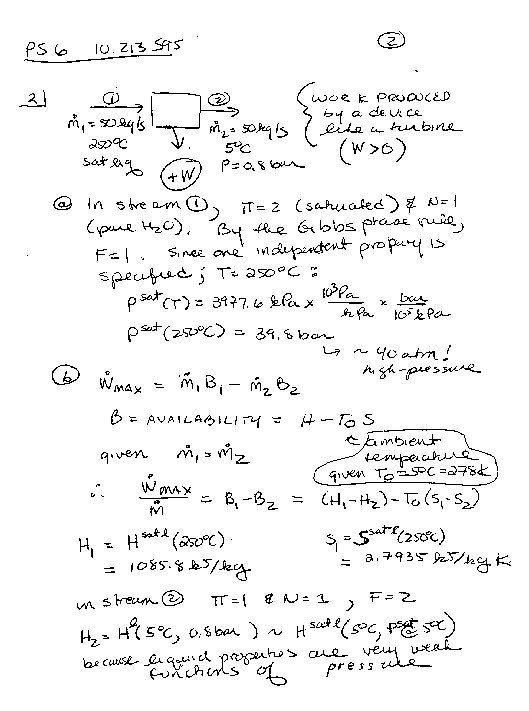 PS 6 10.213 S95
②
2|
① ②
ṁ₁ = 50 kg/s
250°C
sat liq
ṁ₂ = 50 kg/s
5°C
P = 0.8 bar
+Ẇ
WORK PRODUCED
by a device
like a turbine
(W > 0)
ⓐ In stream ①, π = 2 (saturated) & N = 1
(pure H₂O). By the Gibbs phase rule,
F = 1. Since one independent property is
specified; T = 250°C:
P^sat(T) = 3977.6 kPa × 10³Pa/kPa × bar/10⁵kPa
P^sat(250°C) = 39.8 bar
↳ ~ 40 atm!
high-pressure
ⓑ Ẇ_MAX = ṁ₁B₁ - ṁ₂B₂
B = AVAILABILITY = H - T₀S
given ṁ₁ = ṁ₂
ambient
temperature
given T₀ = 5°C = 278K
∴ Ẇ_MAX/ṁ = B₁ - B₂ = (H₁ - H₂) - T₀(S₁ - S₂)
H₁ = H^sat l (250°C)
= 1085.8 kJ/kg
S₁ = S^sat l (250°C)
= 2.7935 kJ/kg K
in stream ② π = 1 & N = 1, F = 2
H₂ = H^l(5°C, 0.8 bar) ~ H^sat l (5°C, P^sat @ 5°C)
because liquid properties are very weak
functions of pressure